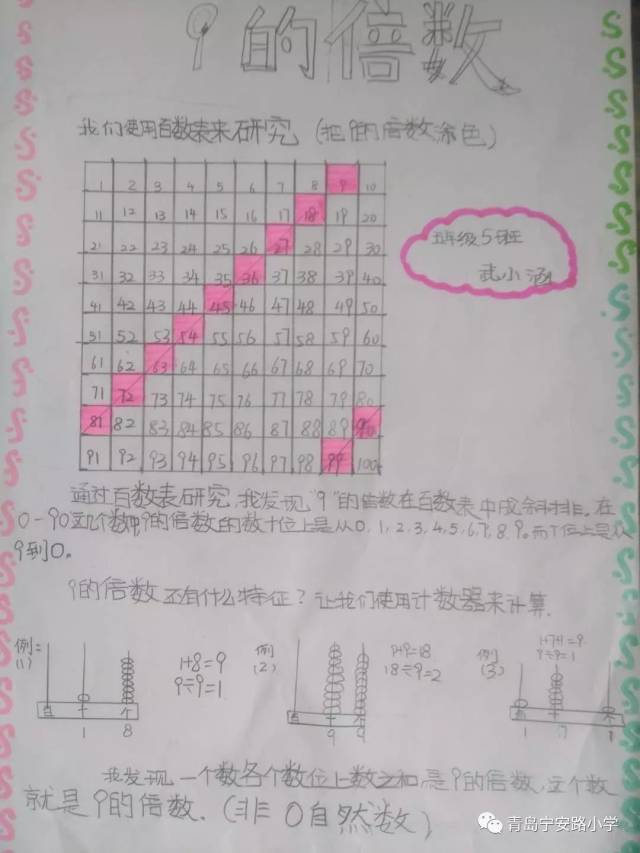 9的倍数
我们使用百数表来研究(把9的倍数涂色)
1 2 3 4 5 6 7 8 9 10
11 12 13 14 15 16 17 18 19 20
21 22 23 24 25 26 27 28 29 30
31 32 33 34 35 36 37 38 39 40
41 42 43 44 45 46 47 48 49 50
51 52 53 54 55 56 57 58 59 60
61 62 63 64 65 66 67 68 69 70
71 72 73 74 75 76 77 78 79 80
81 82 83 84 85 86 87 88 89 90
91 92 93 94 95 96 97 98 99 100
五年级5班
武小涵
通过百数表研究,我发现"9"的倍数在百数表中成斜排。在
0-90这几个数中9的倍数的数十位上是从0,1,2,3,4,5,6,7,8,9。而个位上是从
9到0。
9的倍数还有什么特征?让我们使用计数器来计算.
例:
(1)
1+8=9
9÷9=1
百 十 个
1 8
例
(2)
9+9=18
18÷9=2
百 十 个
9 9
例
(3)
1+7+1=9
9÷9=1
百 十 个
1 7 1
我发现一个数各个数位上数之和是9的倍数,这个数
就是9的倍数.(非0自然数)
青岛宁安路小学